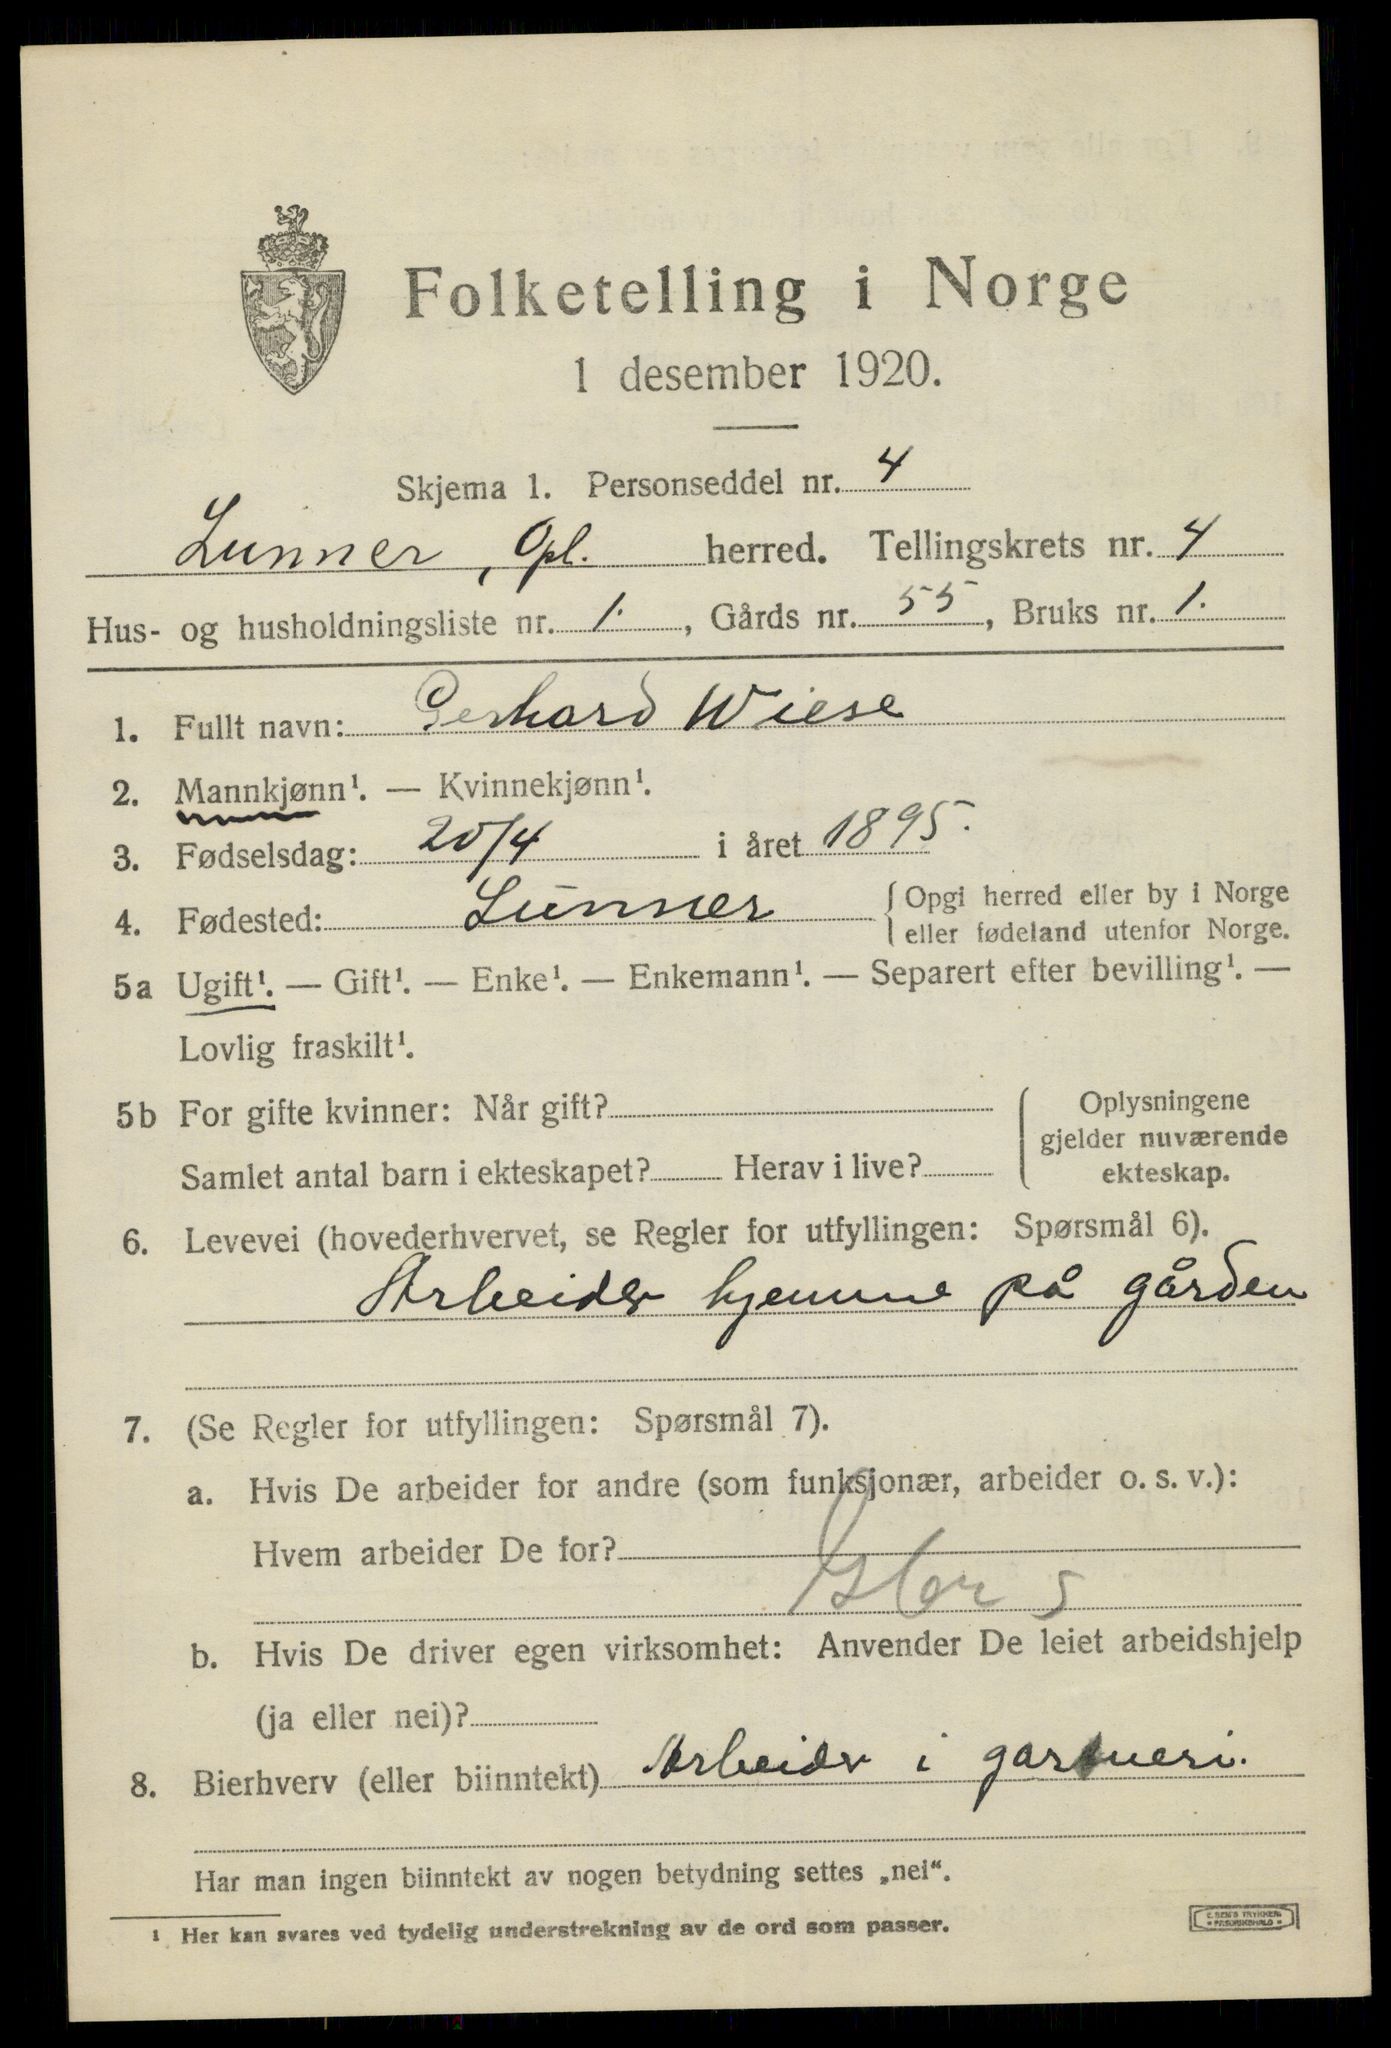 Folketelling i Norge
1 desember 1920.
Skjema 1. Personseddel nr. 4
Lunner, Opl. herred. Tellingskrets nr. 4
Hus- og husholdningsliste nr. 1. , Gårds nr. 55 , Bruks nr. 1.
1. Fullt navn: Gerhard Wiese
2. Mannkjønn¹. — Kvinnekjønn¹.
3. Fødselsdag: 20/4 i året 1895.
4. Fødested: Lunner { Opgi herred eller by i Norge
eller fødeland utenfor Norge.
5a Ugift¹. — Gift¹. — Enke¹. — Enkemann¹. — Separert efter bevilling¹. —
Lovlig fraskilt¹.
5b For gifte kvinner: Når gift? { Oplysningene
gjelder nuværende
Samlet antal barn i ekteskapet? Herav i live? ekteskap.
6. Levevei (hovederhvervet, se Regler for utfyllingen: Spørsmål 6).
Arbeider hjemme på gården
7. (Se Regler for utfyllingen: Spørsmål 7).
a. Hvis De arbeider for andre (som funksjonær, arbeider o. s. v.):
Hvem arbeider De for?
5
b. Hvis De driver egen virksomhet: Anvender De leiet arbeidshjelp
(ja eller nei)?
8. Bierhverv (eller biinntekt) Arbeider i gartneri.
Har man ingen biinntekt av nogen betydning settes „nei“.
¹ Her kan svares ved tydelig understrekning av de ord som passer.